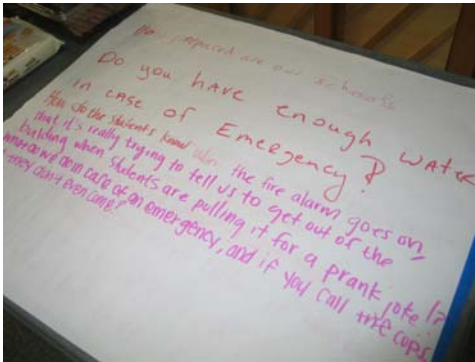 How prepared are our schools
Do you have enough water
in case of Emergency?
How do the students know when the fire alarm goes on,
that it's really trying to tell us to get out of the
building when students are pulling it for a prank joke!?
do in case of an emergency, and if you call the cops
they don't even come?